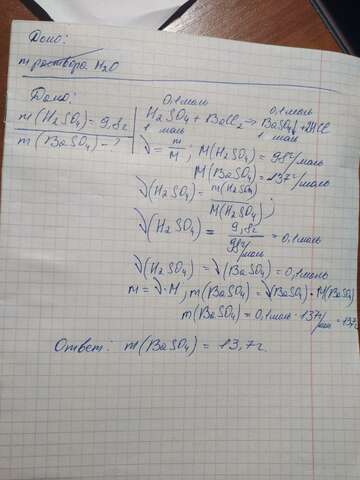 Дано:
m раствора H2O
Дано:
m(H2SO4) = 9,8г
m(BaSO4) - ?
0,1моль 0,1моль
H2SO4 + BaCl2 → BaSO4↓ + 2HCl
1 моль 1 моль
ν = m/M ; M(H2SO4) = 98г/моль
M(BaSO4) = 137г/моль
ν(H2SO4) = m(H2SO4)/M(H2SO4) ;
ν(H2SO4) = 9,8г/98г/моль = 0,1моль
ν(H2SO4) = ν(BaSO4) = 0,1моль
m = ν·M ; m(BaSO4) = ν(BaSO4)·M(BaSO4)
m(BaSO4) = 0,1моль · 137г/моль = 13,7
Ответ: m(BaSO4) = 13,7г.